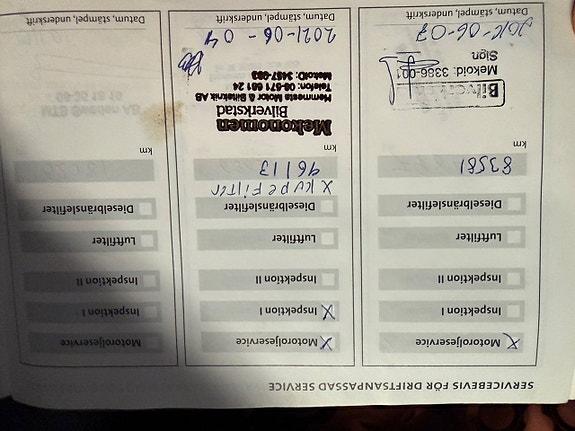 SERVICEBEVIS FÖR DRIFTSANPASSAD SERVICE
X Motoroljeservice
Inspektion I
Inspektion II
Luftfilter
Dieselbränslefilter
83581
km
Mekoid: 3386-001
Sign
Datum, stämpel, underskrift
X Motoroljeservice
X Inspektion I
Inspektion II
Luftfilter
Dieselbränslefilter
X kupefilter
96113
km
Mekonomen
Bilverkstad
Motor & Bilteknik AB
Telefon: 08-571 681 24
MekoID:
2021-06-04
Datum, stämpel, underskrift
Motoroljeservice
Inspektion I
Inspektion II
Luftfilter
Dieselbränslefilter
km
Datum, stämpel, underskrift